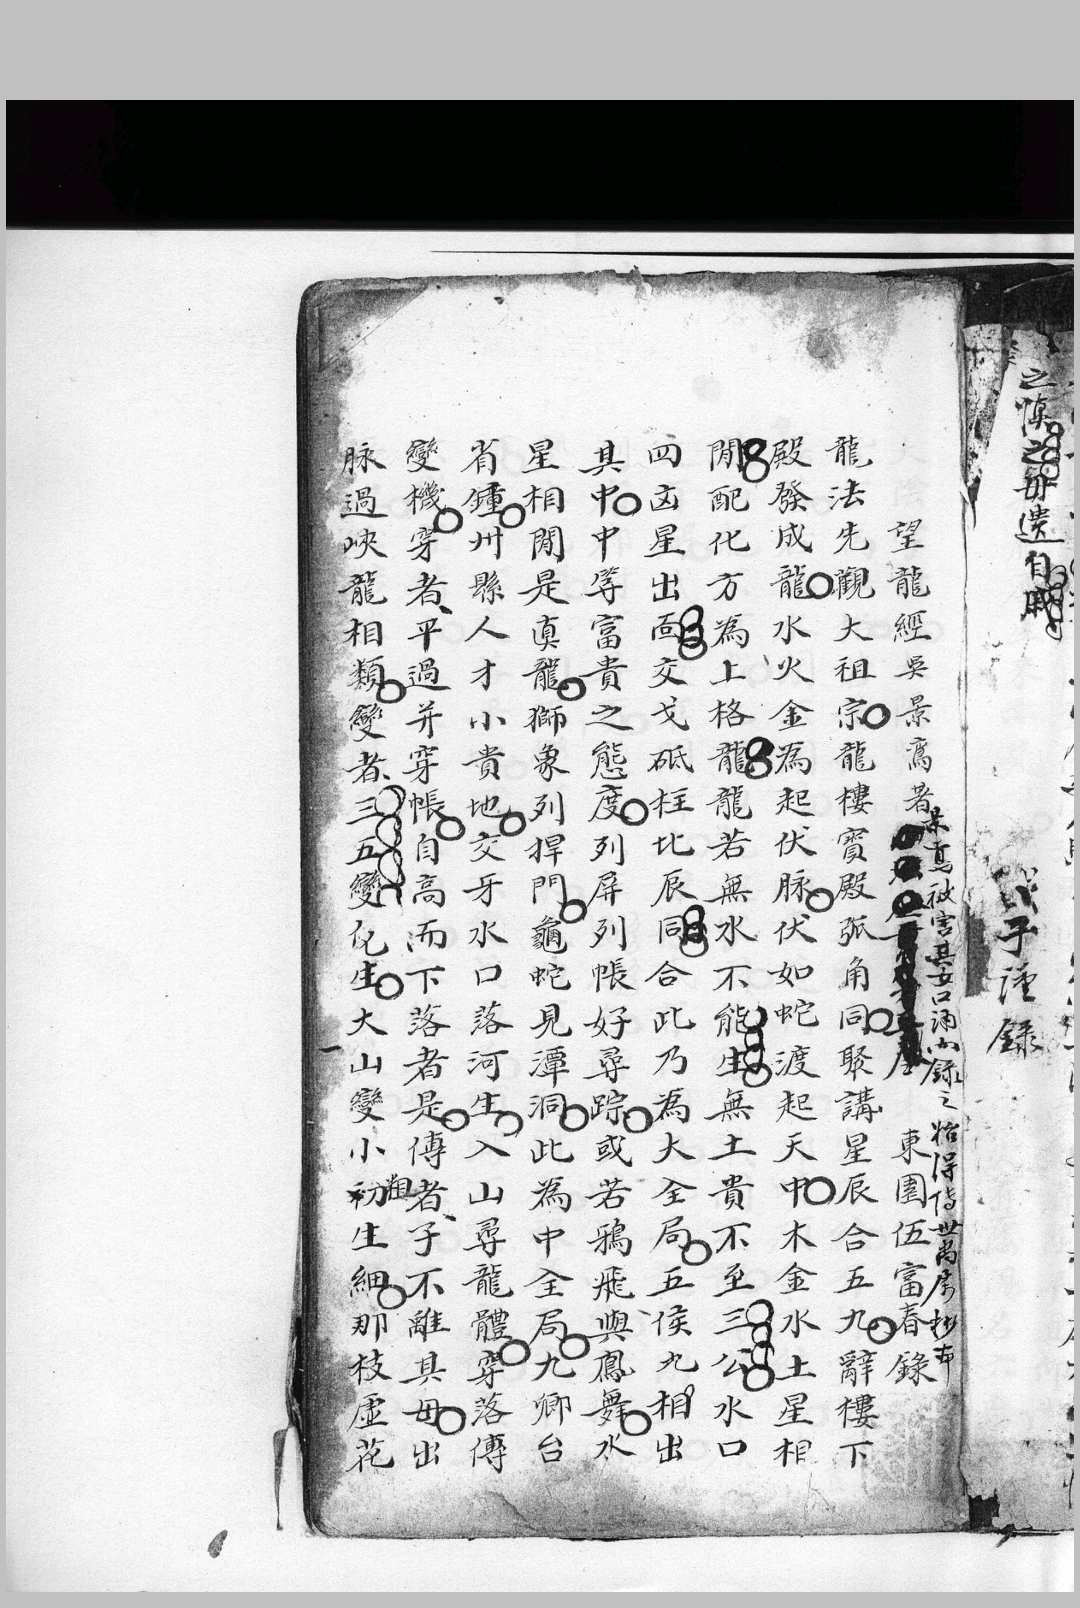 之慎之毋遺自
子謹錄
望龍經吳景鸞著
景鸞被害其女口誦錄之
東園伍富春錄
龍法先觀大祖宗龍樓寶殿弧角同聚講星辰合五九辭樓下
殿發成龍水火金為起伏脉伏如蛇渡起天中木金水土星相
閒配化方為上格龍龍若無水不能生無土貴不至三公水口
四凶星出面交戈砥柱比辰同合此乃為大全局五侯九相出
其中中等富貴之態度列屏列帳好尋踪或若鴉飛與鳳舞水
星相閒是真龍獅象列捍門龜蛇見潭洞此為中全局九卿台
省鍾州縣人才小貴地交牙水口落河生入山尋龍體穿落傳
變機穿者平過并穿帳自高而下落者是傳者子不離其母出
脉過峽龍相類變者三五變化生大山變小粗生細那枝虛花